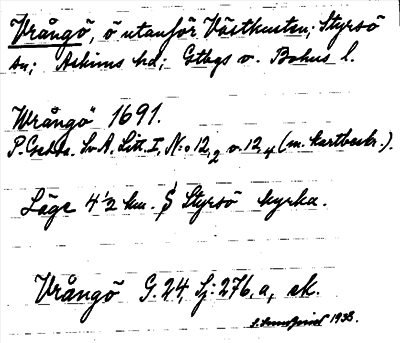 Vrångö, ö utanför Västkusten; Styrsö
sn; Askims hd; Gtbgs o. Bohus l.
"Wrångö" 1691.
P. Gedda. Sv A. Litt. I, N:o 12,2 o. 12,4 (m. kartbeskr.).
Läge 4 1/2 km. S Styrsö kyrka.
Vrångö G. 24, Sj: 276. a, ek.
1933.